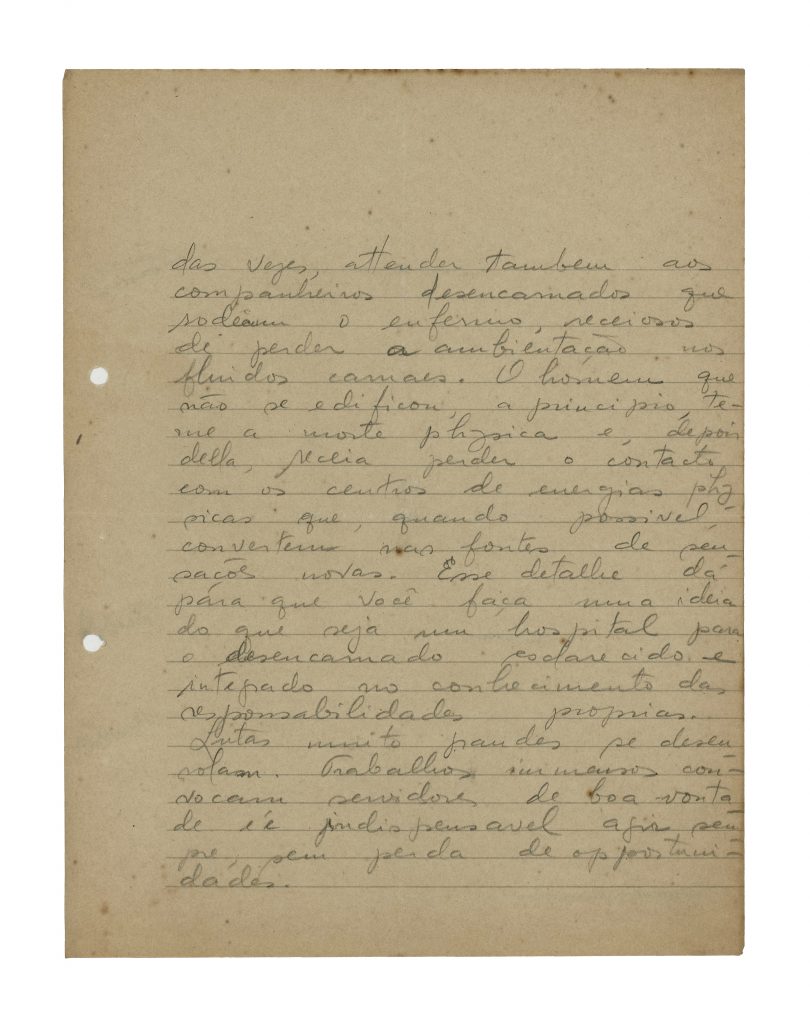 das vezes, attender tambem aos
companheiros desencarnados que
rodeiam o enfermo, receiosos
de perder a ambientação nos
fluidos carnaes. O homem que
não se edificou, a principio, te-
me a morte physica e, depois
della, receia perder o contacto
com os centros de energias phy
sicas que, quando possivel,
convertem nas fontes de sen-
sações novas. Esse detalhe dá
pára que você faça uma ideia
do que seja um hospital para
o desencarnado esclarecido e
integrado no conhecimento das
responsabilidades proprias.
Lutas muito grandes se desen
rolam. Trabalhos immensos con-
vocam servidores de boa vonta
de e é indispensavel agir sem
pre, sem perda de opportuni-
dades.